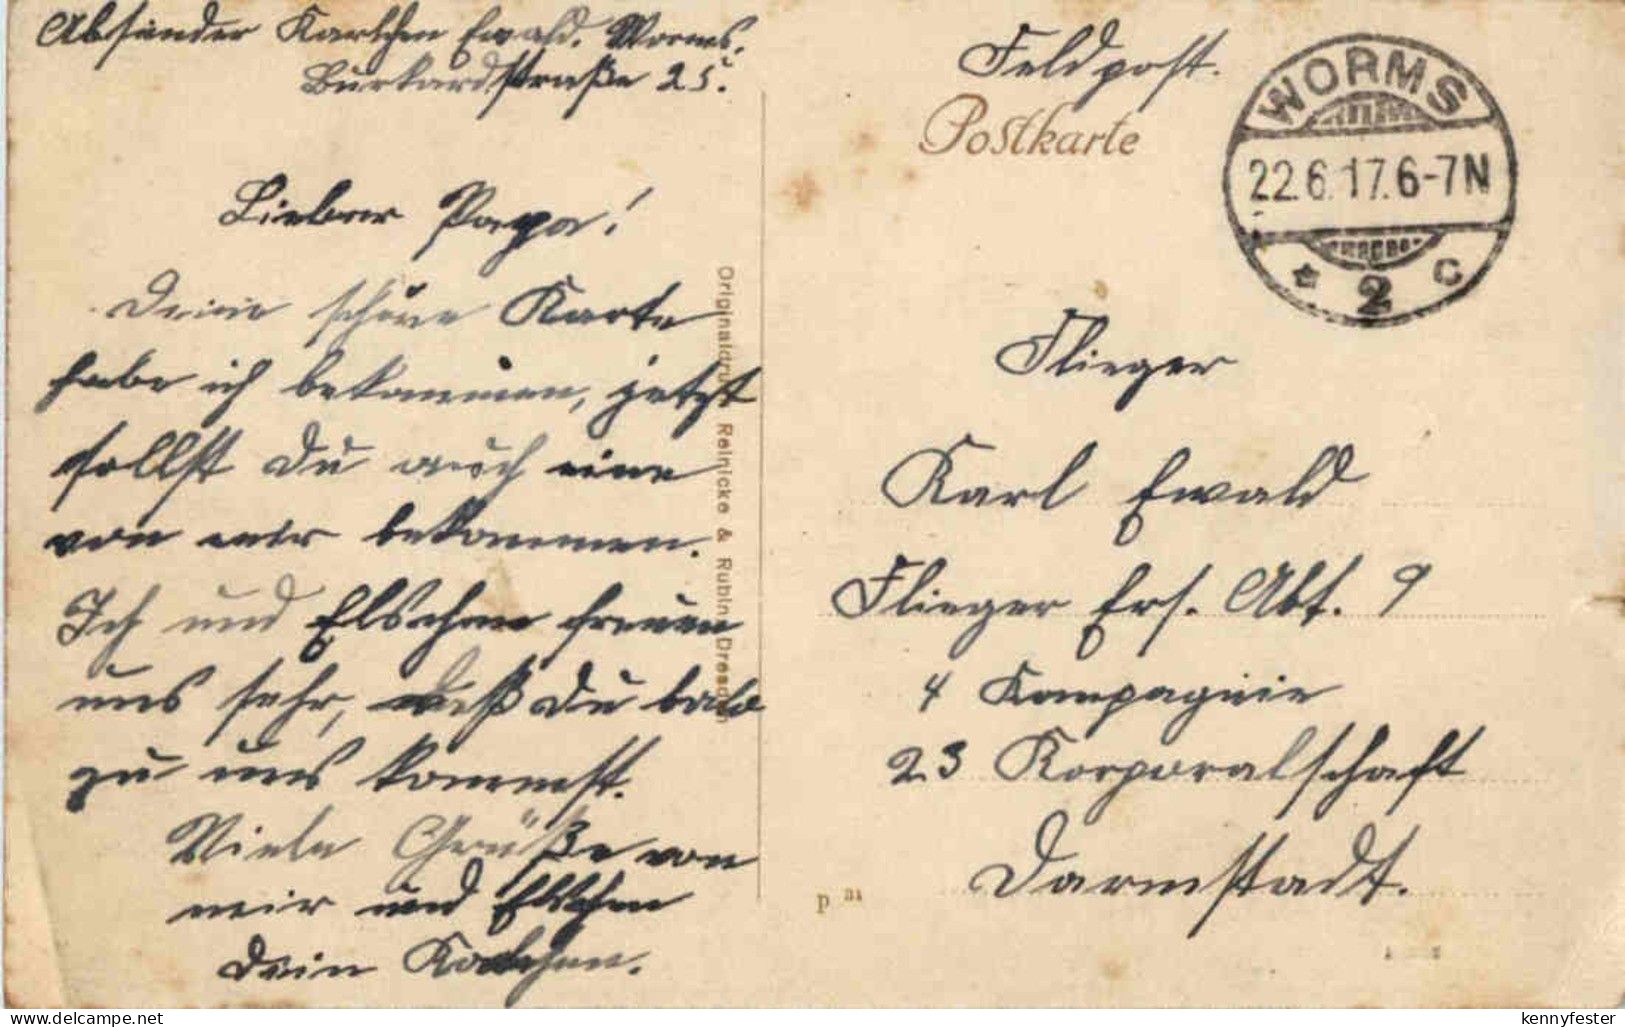 Absender Karlchen Ewald. Worms.
Burkardstraße 25.
Lieber Papa!
Deine schöne Karte
habe ich bekommen, jetzt
sollst Du auch eine
von mir bekommen.
Ich und Elschen freuen
uns sehr, daß Du bald
zu uns kommst.
Viele Grüße von
mir und Elschen
Dein Karlchen.
Originaldruck Reinicke & Rubin, Dresden
Feldpost.
Postkarte
WORMS
22.6.17.6-7N
* 2 c
Flieger
Karl Ewald
Flieger Ers. Abt. 9
4 Kompagnie
23 Korporalschaft
Darmstadt.
p
delcampe.net
kennyfester